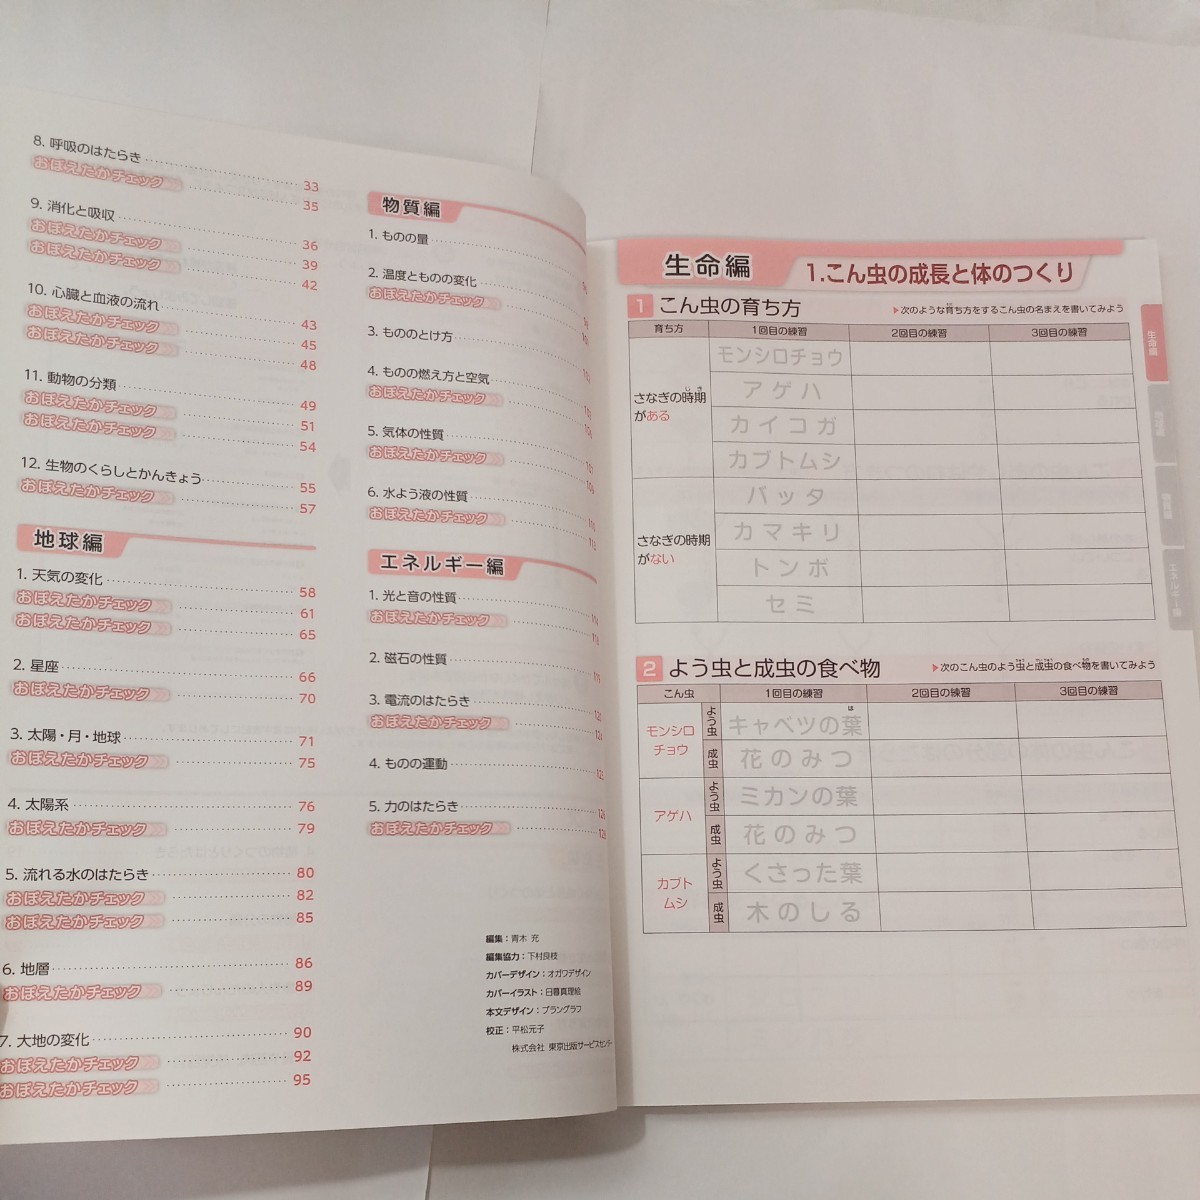 8. 呼吸のはたらき 33
おぼえたかチェック 35
9. 消化と吸収 36
おぼえたかチェック 39
おぼえたかチェック 42
10. 心臓と血液の流れ 43
おぼえたかチェック 45
おぼえたかチェック 48
11. 動物の分類 49
おぼえたかチェック 51
おぼえたかチェック 54
12. 生物のくらしとかんきょう 55
おぼえたかチェック 57
地球編
1. 天気の変化 58
おぼえたかチェック 61
おぼえたかチェック 65
2. 星座 66
おぼえたかチェック 70
3. 太陽・月・地球 71
おぼえたかチェック 75
4. 太陽系 76
おぼえたかチェック 79
5. 流れる水のはたらき 80
おぼえたかチェック 82
おぼえたかチェック 85
6. 地層 86
おぼえたかチェック 89
7. 大地の変化 90
おぼえたかチェック 92
おぼえたかチェック 95
物質編
1. ものの量
2. 温度とものの変化
おぼえたかチェック
3. もののとけ方
4. ものの燃え方と空気
おぼえたかチェック
5. 気体の性質
おぼえたかチェック
6. 水よう液の性質
おぼえたかチェック
エネルギー編
1. 光と音の性質
おぼえたかチェック
2. 磁石の性質
3. 電流のはたらき
おぼえたかチェック
4. ものの運動
5. 力のはたらき
おぼえたかチェック
編集：青木 充
編集協力：下村良枝
カバーデザイン：オガワデザイン
カバーイラスト：日暮真理絵
本文デザイン：プラングラフ
校正：平松元子
株式会社 東京出版サービスセンター
生命編
1.こん虫の成長と体のつくり
1 こん虫の育ち方 ▶次のような育ち方をするこん虫の名まえを書いてみよう
育ち方 1回目の練習 2回目の練習 3回目の練習
さなぎの時期がある
モンシロチョウ
アゲハ
カイコガ
カブトムシ
さなぎの時期がない
バッタ
カマキリ
トンボ
セミ
2 よう虫と成虫の食べ物 ▶次のこん虫のよう虫と成虫の食べ物を書いてみよう
こん虫 1回目の練習 2回目の練習 3回目の練習
モンシロチョウ
よう虫 キャベツの葉
成虫 花のみつ
アゲハ
よう虫 ミカンの葉
成虫 花のみつ
カブトムシ
よう虫 くさった葉
成虫 木のしる
生命編
エネルギー編